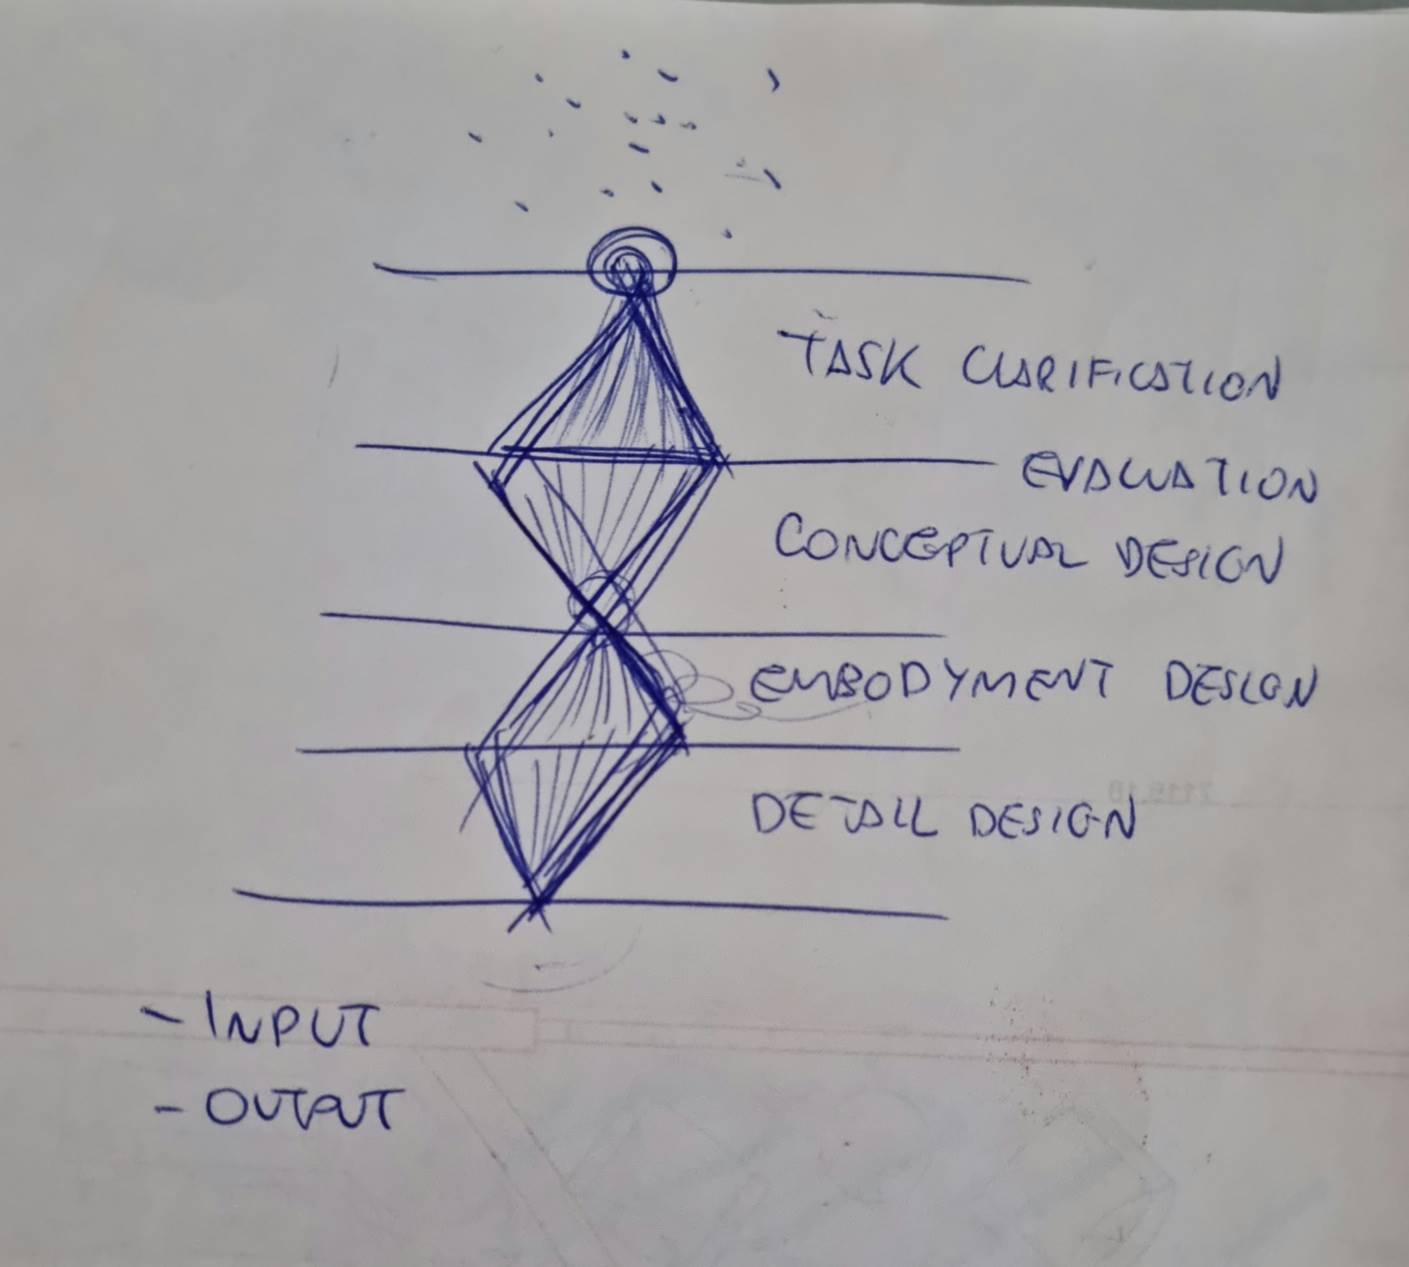 TASK CLARIFICATION
EVALUATION
CONCEPTUAL DESIGN
EMBODYMENT DESIGN
DETAIL DESIGN
- INPUT
- OUTPUT